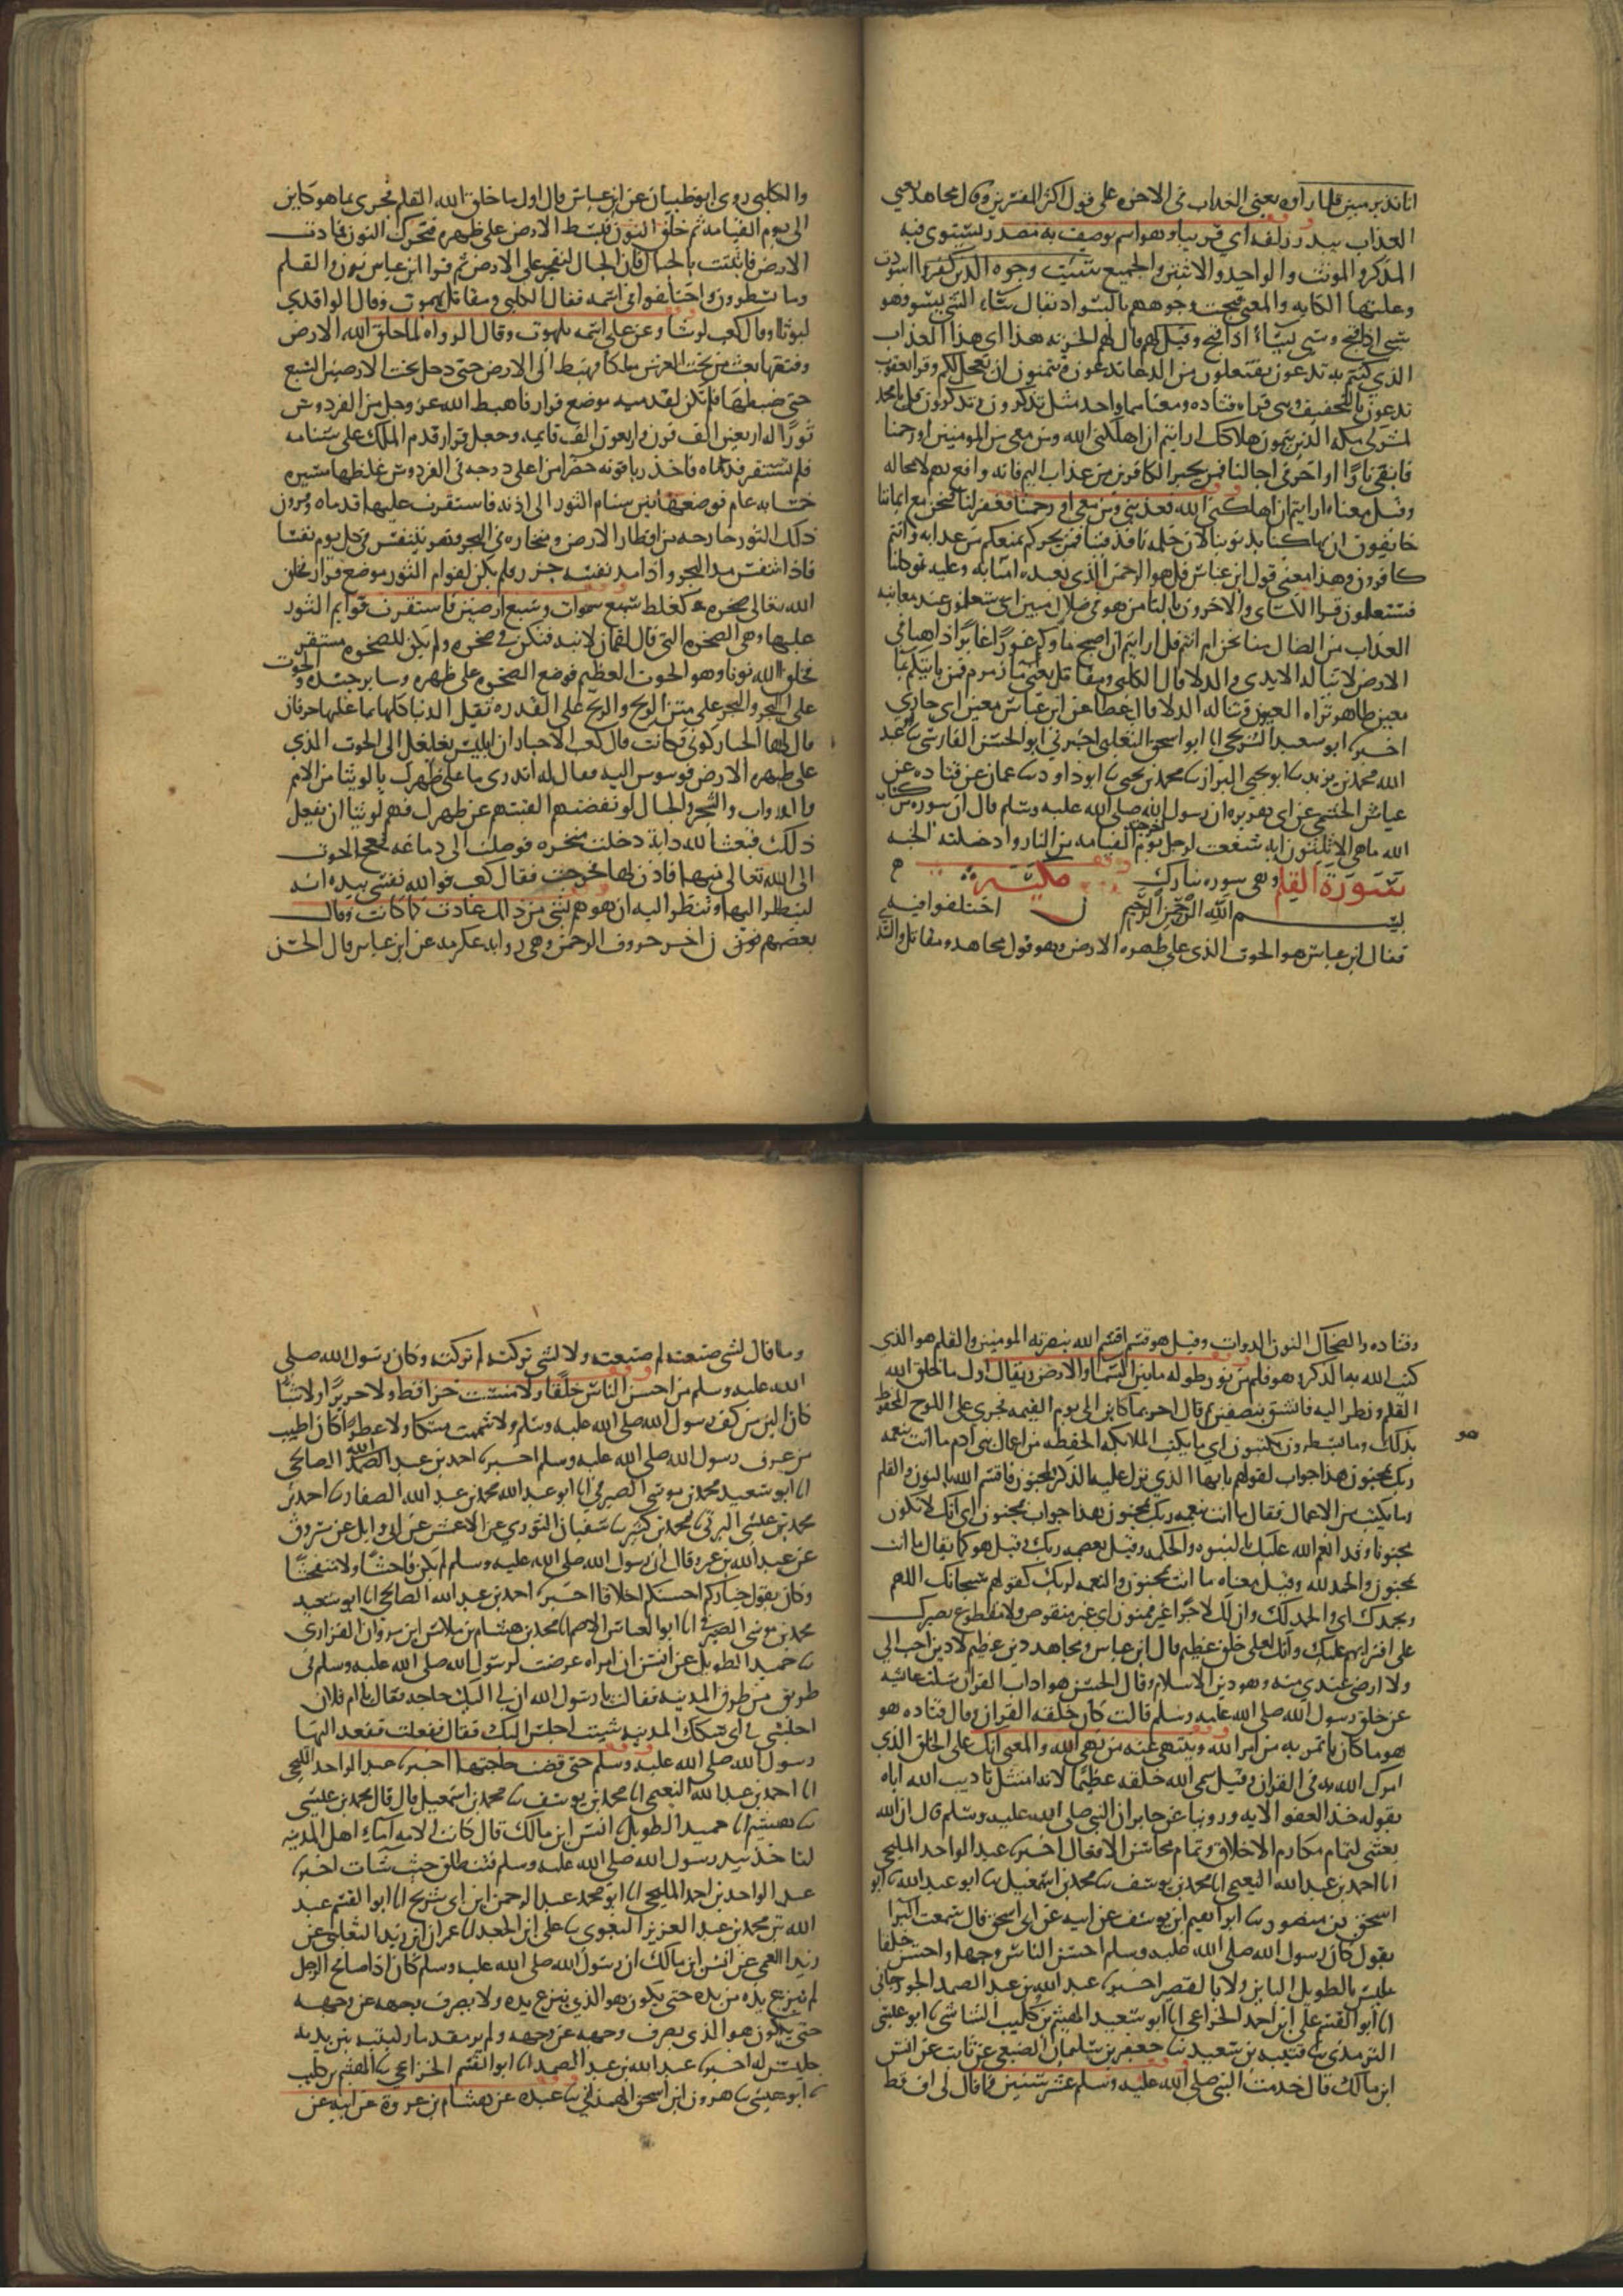 انا نذير مبين فلما راوه يعني العذاب في الاخره على قول اكثر المفسرين وقال مجاهد يعني
العذاب ببدر زلفه اي قريبا وهو اسم يوصف به مصدر يستوي فيه
المذكر والمونث والواحد والاثنين والجميع سيئت وجوه الذين كفروا اسودت
وعليها الكابه والمعنى قبحت وجوههم بالسواد يقال ساء الشي يسو وهو
سيى اذا قبح وسيى يساء اذا قبح وقيل لهم قال لهم الخزنه هذا اي هذا العذاب
الذي كنتم به تدعون يفتعلون من الدعا تدعون وتتمنون ان يعجل لكم وقرا يعقوب
تدعون بالتخفيف وهي قراه قتاده ومعناهما واحد مثل تذكرون وتذكرون قل يا محمد
لمشركي مكه الذين يتمنون هلاكك ارايتم ان اهلكني الله ومن معي من المومنين او رحمنا
فابقانا او اخر في اجالنا فمن يجير الكافرين من عذاب اليم فانه واقع بهم لا محاله
وقيل معناه ارايتم ان اهلكني الله فعذبني ومن معي او رحمنا فغفر لنا فنحن مع ايماننا
خايفون ان يهلكنا بذنوبنا لان حكمه نافذ فينا فمن يجركم يمنعكم من عذابه وانتم
كافرون وهذا معنى قول ابن عباس قل هو الرحمن الذي نعبده امنا به وعليه توكلنا
فستعلمون قرا الكساي والاخرون بالتا من هو في ضلال مبين اي ستعلمون عند معاينه
العذاب من الضال منا نحن ام انتم قل ارايتم ان اصبح ماوكم غورا غايرا ذاهبا في
الارض لا تناله الايدي والدلا قال الكلبي ومقاتل يعني ما زمزم فمن ياتيكم بما
معين ظاهر تراه العيون وتناله الدلا وقال عطا عن ابن عباس معين اي جاري
اخبرنا ابو سعيد الشريحي انا ابو اسحق الثعلبي اخبرني ابو الحسن الفارسي نا عبد
الله محمد بن يزيد نا ابو يحيي البزاز نا محمد بن يحيي نا ابو داود نا عمان عن قتاده عن
عياش الجشمي عن ابي هريره ان رسول الله صلى الله عليه وسلم قال ان سوره من كتاب
الله ما هي الا ثلثون ايه شفعت لرجل فاخرجته يوم القيامه من النار وادخلته الجنه
وهي سوره تبارك
سورة القلم مكيه
بسم الله الرحمن الرحيم ن اختلفوا فيه
فقال ابن عباس هو الحوت الذي على ظهره الارض وهو قول مجاهد ومقاتل والسدي
والكلبي روى ابو ظبيان عن ابن عباس قال اول ما خلق الله القلم فجرى بما هو كاين
الى يوم القيامه ثم خلق النون فبسط الارض على ظهره فتحرك النون فمادت
الارض فاثبتت بالجبال فان الجبال لتفخر على الارض ثم قرا ابن عباس نون والقلم
وما يسطرون واختلفوا في اسمه فقال الكلبي ومقاتل يهموت وقال الواقدي
ليوثا وقال كعب لوثيا وعن علي اسمه بلهوت وقال الرواه لما خلق الله الارض
وفتقها بعث من تحت العرش ملكا فهبط الى الارض حتى دخل تحت الارضين السبع
حتى ضبطها فلم تكن لقدميه موضع قرار فاهبط الله عز وجل من الفردوس
ثورا له اربعين الف قرن واربعون الف قايمه وجعل قرار قدم الملك على سنامه
فلم تستقر قدماه فاخذ ياقوته خضرا من اعلى درجه في الفردوس غلظها مسيره
خمسمايه عام فوضعها بين سنام الثور الى اذنه فاستقرت عليها قدماه وقرون
ذلك الثور خارجه من اقطار الارض ومنخاره في البحر فهو يتنفس في كل يوم نفسا
فاذا تنفس مد البحر واذا مد نفسه جزر ولم يكن لقوايم الثور موضع قرار فخلق
الله تعالى صخره كغلظ سبع سموات وسبع ارضين فاستقرت قوايم الثور
عليها وهي الصخره التي قال لقمان لابنه فتكن في صخره ولم يكن للصخره مستقر
فخلق الله نونا وهو الحوت العظيم فوضع الصخره على ظهره وساير جسده والحوت
على البحر والبحر على متن الريح والريح على القدره نقيل الدنيا كلها بما عليها حرفان
قال لها الجبار كوني فكانت قال كعب الاحبار ان ابليس تغلغل الى الحوت الذي
على ظهره الارض فوسوس اليه فقال له اتدري ما على ظهرك يا لوثيا من الامم
والدواب والشجر والجبال لو نفضتهم القيتهم عن ظهرك فهم لوثيا ان يفعل
ذلك فبعث الله دابة دخلت منخره فوصلت الى دماغه فعج الحوت
الى الله تعالى منها فاذن لها فخرجت فقال كعب فوالله نفسي بيده انه
لينظر اليها وتنظر اليه ان هو هم بشي من ذلك عادت كما كانت وقال
بعضهم نون ن اخر حروف الرحمن وهي روايه عكرمه عن ابن عباس قال الحسن
وقتاده والضحاك النون الدوات وقيل هو قسم اقسم الله بنصرته المومنين والقلم هو الذي
كتب الله به الذكر وهو قلم من نور طوله ما بين السما والارض ويقال اول ما خلق الله
القلم ونظر اليه فانشق بنصفين ثم قال اجر بما كاين الى يوم القيمه فجرى على اللوح المحفوظ
بذلك وما يسطرون يكتبون اي ما يكتب الملايكه الحفظه من اعمال بني ادم ما انت بنعمه
ربك بمجنون هذا جواب لقولهم يا ايها الذي نزل عليه الذكر انك لمجنون فاقسم الله بالنون والقلم
وما يكتب من الاعمال فقال ما انت بنعمه ربك بمجنون هذا جواب مجنون اي انك لا تكون
مجنونا وقد انعم الله عليك بالنبوه والحكمه وقيل بعصمه ربك وقيل هو كما يقال ما انت
بمجنون والحمد لله وقيل معناه ما انت بمجنون والنعمه لربك كقولهم سبحانك اللهم
وبحمدك اي والحمد لك وان لك لاجرا غير ممنون اي غير منقوص ولا مقطوع بصبرك
على افترايهم عليك وانك لعلى خلق عظيم قال ابن عباس ومجاهد دين عظيم لا دين احب الي
ولا ارضى عندي منه وهو دين الاسلام وقال الحسن هو اداب القران سئلت عائشه
عن خلق رسول الله صلى الله عليه وسلم قالت كان خلقه القران وقال قتاده هو
هو ما كان ياتمر به من امر الله وينتهي عنه من نهي الله والمعنى انك على الخلق الذي
امرك الله به في القران وقيل سمى الله خلقه عظيما لانه امتثل تاديب الله اياه
بقوله خذ العفو الايه وروينا عن جابر ان النبي صلى الله عليه وسلم قال ان الله
بعثني لتمام مكارم الاخلاق وتمام محاسن الافعال اخبرنا عبد الواحد المليحي
انا احمد بن عبد الله النعيمي انا محمد بن يوسف نا محمد بن اسمعيل نا ابو عبد الله نا ابو
اسحق بن منصور نا ابراهيم ابن يوسف عن ابيه عن ابي اسحق قال سمعت البرا
يقول كان رسول الله صلى الله عليه وسلم احسن الناس وجها واحسن خلقا
ليس بالطويل الباين ولا بالقصير اخبرنا عبد الله بن عبد الصمد الجورجاني
انا ابو القسم علي ابن احمد الخزاعي انا ابو سعيد الهيثم بن كليب الشاشي نا ابو عيسى
الترمذي نا قتيبه بن سعيد نا جعفر بن سليمان الضبعي عن ثابت عن انس
ابن مالك قال خدمت النبي صلى الله عليه وسلم عشر سنين فما قال لي اف قط
وما قال لشي صنعت لم صنعت ولا لشي تركت لم تركت وكان رسول الله صلى
الله عليه وسلم من احسن الناس خلقا ولا مسست خزا قط ولا حريرا ولا شيا
كان الين من كف رسول الله صلى الله عليه وسلم ولا شممت مسكا ولا عطرا كان اطيب
من عرف رسول الله صلى الله عليه وسلم اخبرنا احمد بن عبد الله الصالحي
انا ابو سعيد محمد بن موسى الصيرفي انا ابو عبد الله محمد بن عبد الله الصفار نا احمد بن
محمد بن عيسى البرتي نا محمد بن كثير نا سفيان الثوري عن الاعمش عن ابي وايل عن مسروق
عن عبد الله بن عمر وقال ان رسول الله صلى الله عليه وسلم لم يكن فاحشا ولا متفحشا
وكان يقول خياركم احسنكم اخلاقا اخبرنا احمد بن عبد الله الصالحي انا ابو سعيد
محمد بن موسى الصيرفي انا ابو العباس الاصم انا محمد بن هشام بن ملاس ابن مروان الفزاري
نا حميد الطويل عن انس ان امراه عرضت لرسول الله صلى الله عليه وسلم في
طريق من طرق المدينه فقالت يا رسول الله ان لي اليك حاجه فقال يا ام فلان
اجلسي في اي سكك المدينه شيت اجلس اليك فقال ففعلت فقعد اليها
رسول الله صلى الله عليه وسلم حتى قضت حاجتها اخبرنا عبد الواحد المليحي
انا احمد بن عبد الله النعيمي انا محمد بن يوسف نا محمد بن اسمعيل قال قال محمد بن عيسى
نا هشيم انا حميد الطويل نا انس ابن مالك قال كانت الامه من اماء اهل المدينه
لتاخذ بيد رسول الله صلى الله عليه وسلم فتنطلق حيث شات اخبرنا
عبد الواحد بن احمد المليحي انا ابو محمد عبد الرحمن ابن ابي شريح انا ابو القسم عبد
الله بن محمد بن عبد العزيز البغوي نا علي ابن الجعد انا عمران ابن زيد الثعلبي عن
زيد العمي عن انس ابن مالك ان رسول الله صلى الله عليه وسلم كان اذا صافح الرجل
لم ينزع يده من يده حتى يكون هو الذي ينزع يده ولا يصرف وجهه عن وجهه
حتى يكون هو الذي يصرف وجهه عن وجهه ولم ير مقدما ركبتيه بين يديه
جليس له اخبرنا عبد الله بن عبد الصمد انا ابو القسم الخزاعي نا الهيثم بن كليب
نا ابو عيسى نا هرون ابن اسحق الهمداني نا عبده عن هشام بن عروة عن ابيه عن